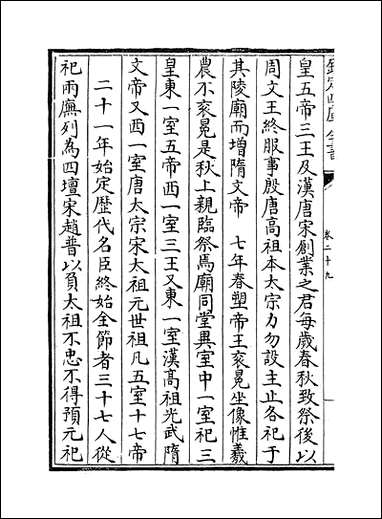 欽定四庫全書
卷二十九
皇五帝三王及漢唐宋創業之君每歲春秋致祭後以
周文王終服事殷唐高祖本太宗力勿設主止各祀于
其陵廟而增隋文帝　七年春塑帝王衮冕坐像惟羲
農不衮冕是秋上親臨祭焉廟同堂異室中一室祀三
皇東一室五帝西一室三王又東一室漢高祖光武隋
文帝又西一室唐太宗宋太祖元世祖凡五室十七帝
二十一年始定歴代名臣終始全節者三十七人從
祀兩廡列為四壇宋趙普以負太祖不忠不得預元祀